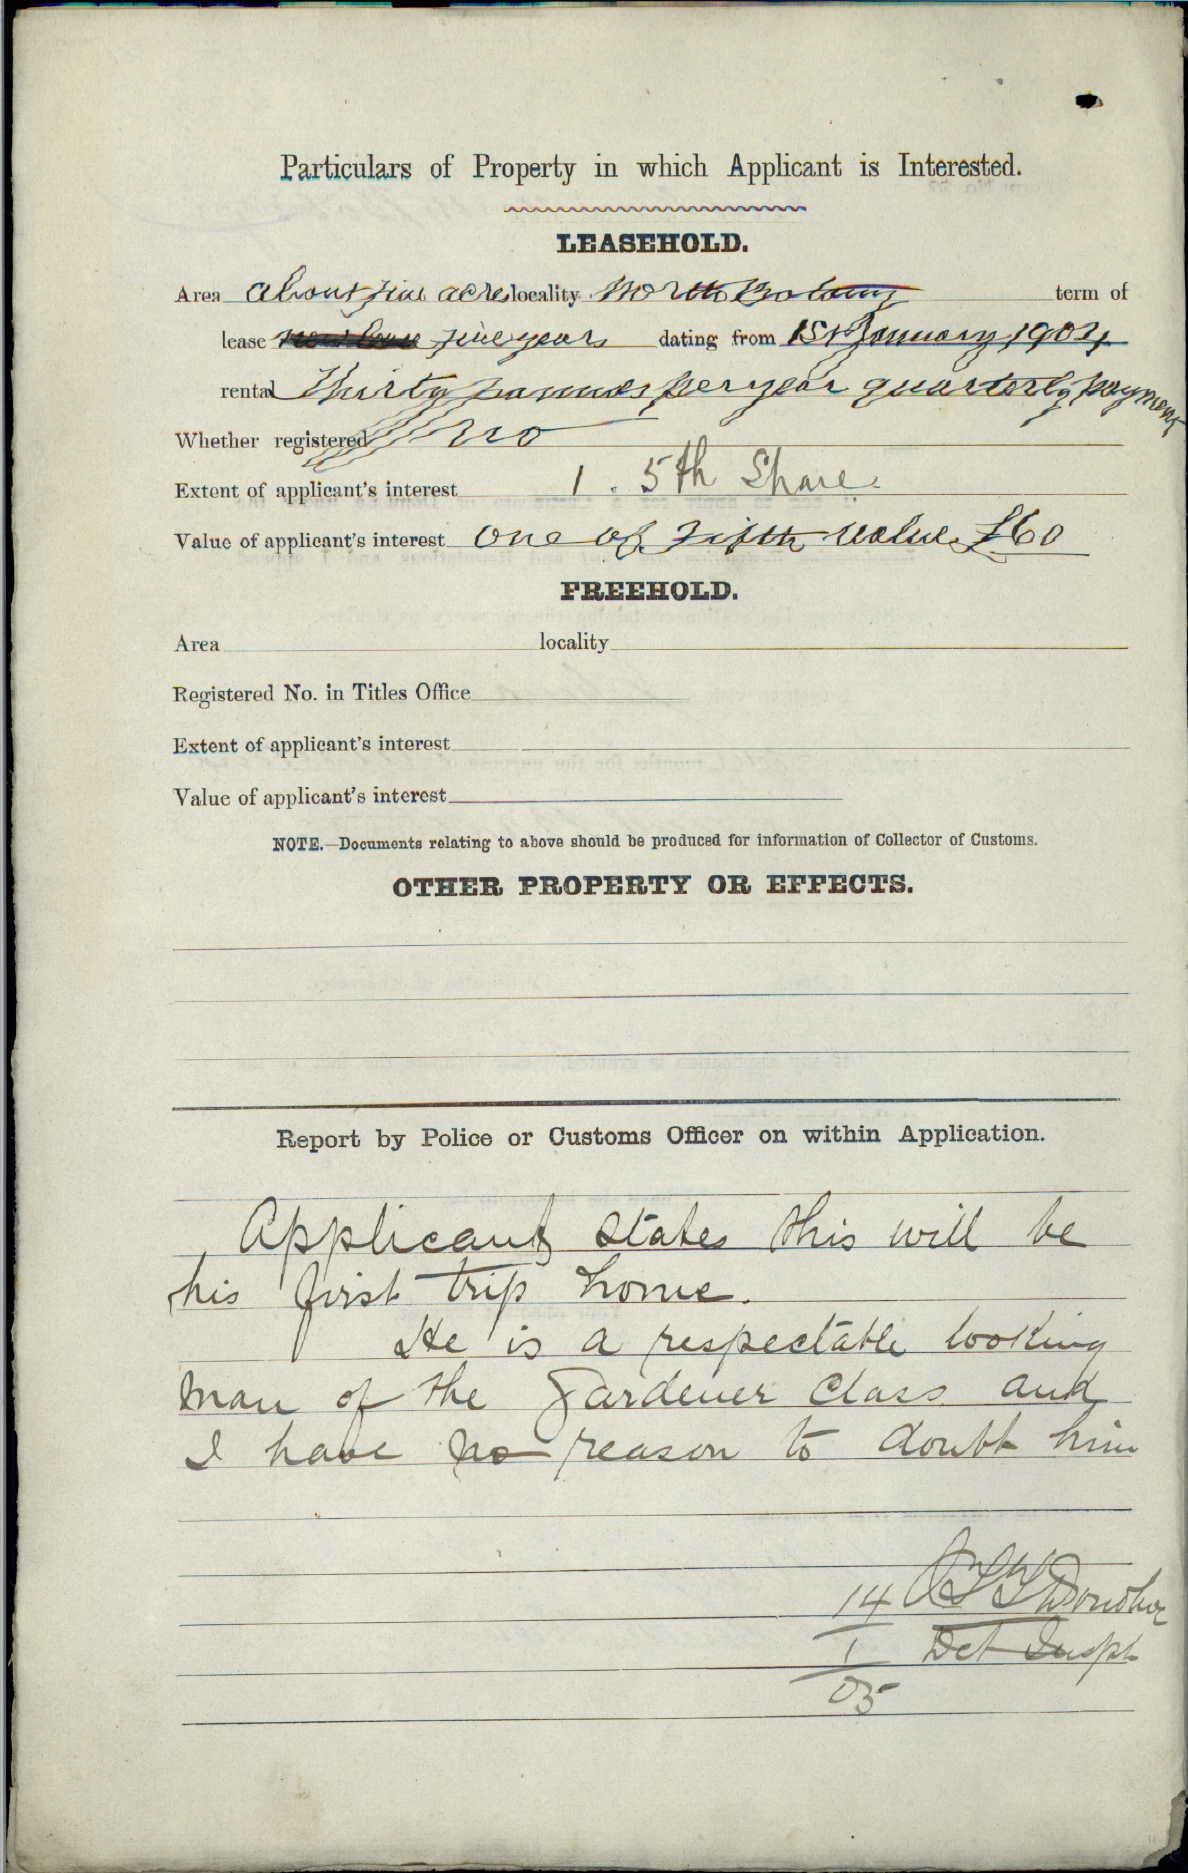 Particulars of Property in which Applicant is Interested.
LEASEHOLD.
Area about five acres locality North Botany term of
lease five years dating from 1st January 1904
rental Thirty pounds per year quarterly payment
Whether registered no
Extent of applicant's interest 1.5th Share
Value of applicant's interest one of Fifth value £60
FREEHOLD.
Area locality
Registered No. in Titles Office
Extent of applicant's interest
Value of applicant's interest
NOTE.—Documents relating to above should be produced for information of Collector of Customs.
OTHER PROPERTY OR EFFECTS.
Report by Police or Customs Officer on within Application.
Applicant states this will be
his first trip home.
He is a respectable looking
man of the Gardener Class and
I have no reason to doubt him
14 Donohoe
1 Det Inspt
05